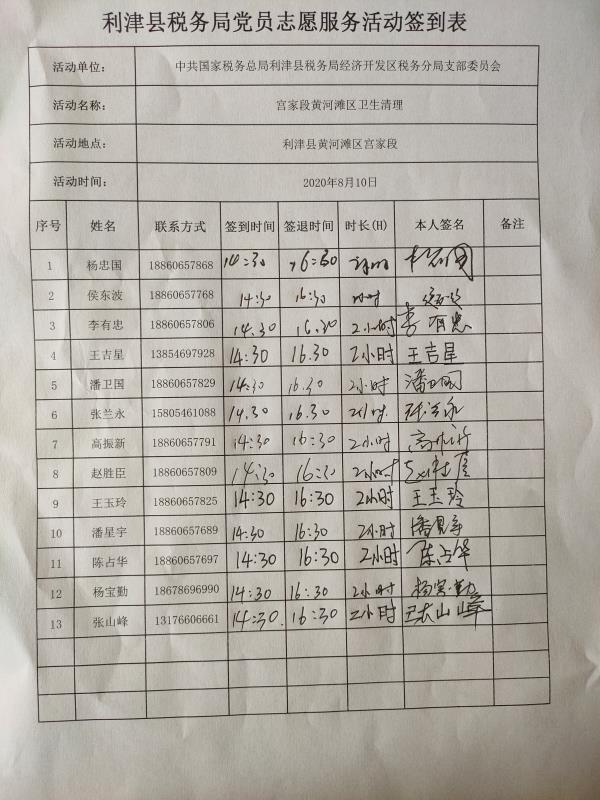 利津县税务局党员志愿服务活动签到表
活动单位： 中共国家税务总局利津县税务局经济开发区税务分局支部委员会
活动名称： 宫家段黄河滩区卫生清理
活动地点： 利津县黄河滩区宫家段
活动时间： 2020年8月10日
序号 姓名 联系方式 签到时间 签退时间 时长(H) 本人签名 备注
1 杨忠国 18860657868 14:30 16:30
2 侯东波 18860657768 14:30 16:30 小时
3 李有忠 18860657806 14.30 16.30 2小时 李有忠
4 王吉星 13854697928 14:30 16.30 2小时 王吉星
5 潘卫国 18860657829 14:30 16.30 2小时 潘卫国
6 张兰永 15805461088 14.30 16.30 2小时 张兰永
7 高振新 18860657791 14:30 16:30 2小时
8 赵胜臣 18860657809 14:30 16:30 2小时
9 王玉玲 18860657825 14:30 16:30 2小时 王玉玲
10 潘星宇 18860657689 14:30 16:30 2小时 潘星宇
11 陈占华 18860657697 14:30 16:30 2小时 陈占华
12 杨宝勤 18678696990 14:30 16:30 2小时 杨宝勤
13 张山峰 13176606661 14:30 16:30 2小时 张山峰